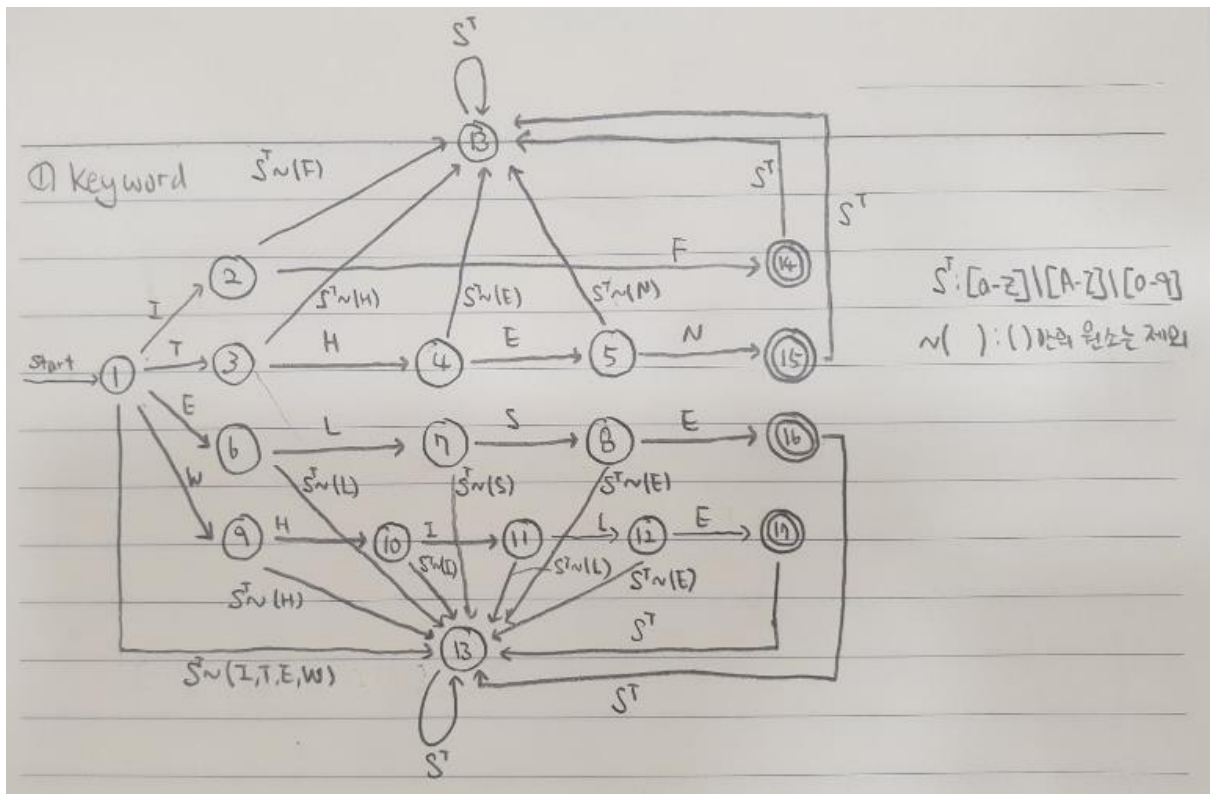 Sᵀ
13
① keyword
Sᵀ~(F)
Sᵀ
Sᵀ
2
F
14
Sᵀ:[a-z]|[A-Z]|[0-9]
I
Sᵀ~(H)
Sᵀ~(E)
Sᵀ~(N)
~( ) : ( )안의 원소는 제외
start
1
T
3
H
4
E
5
N
15
E
6
L
7
S
8
E
16
W
Sᵀ~(L)
Sᵀ~(S)
Sᵀ~(E)
9
H
10
I
11
L
12
E
17
Sᵀ~(H)
Sᵀ~(I)
Sᵀ~(L)
Sᵀ~(E)
Sᵀ
13
Sᵀ~(I,T,E,W)
Sᵀ
Sᵀ